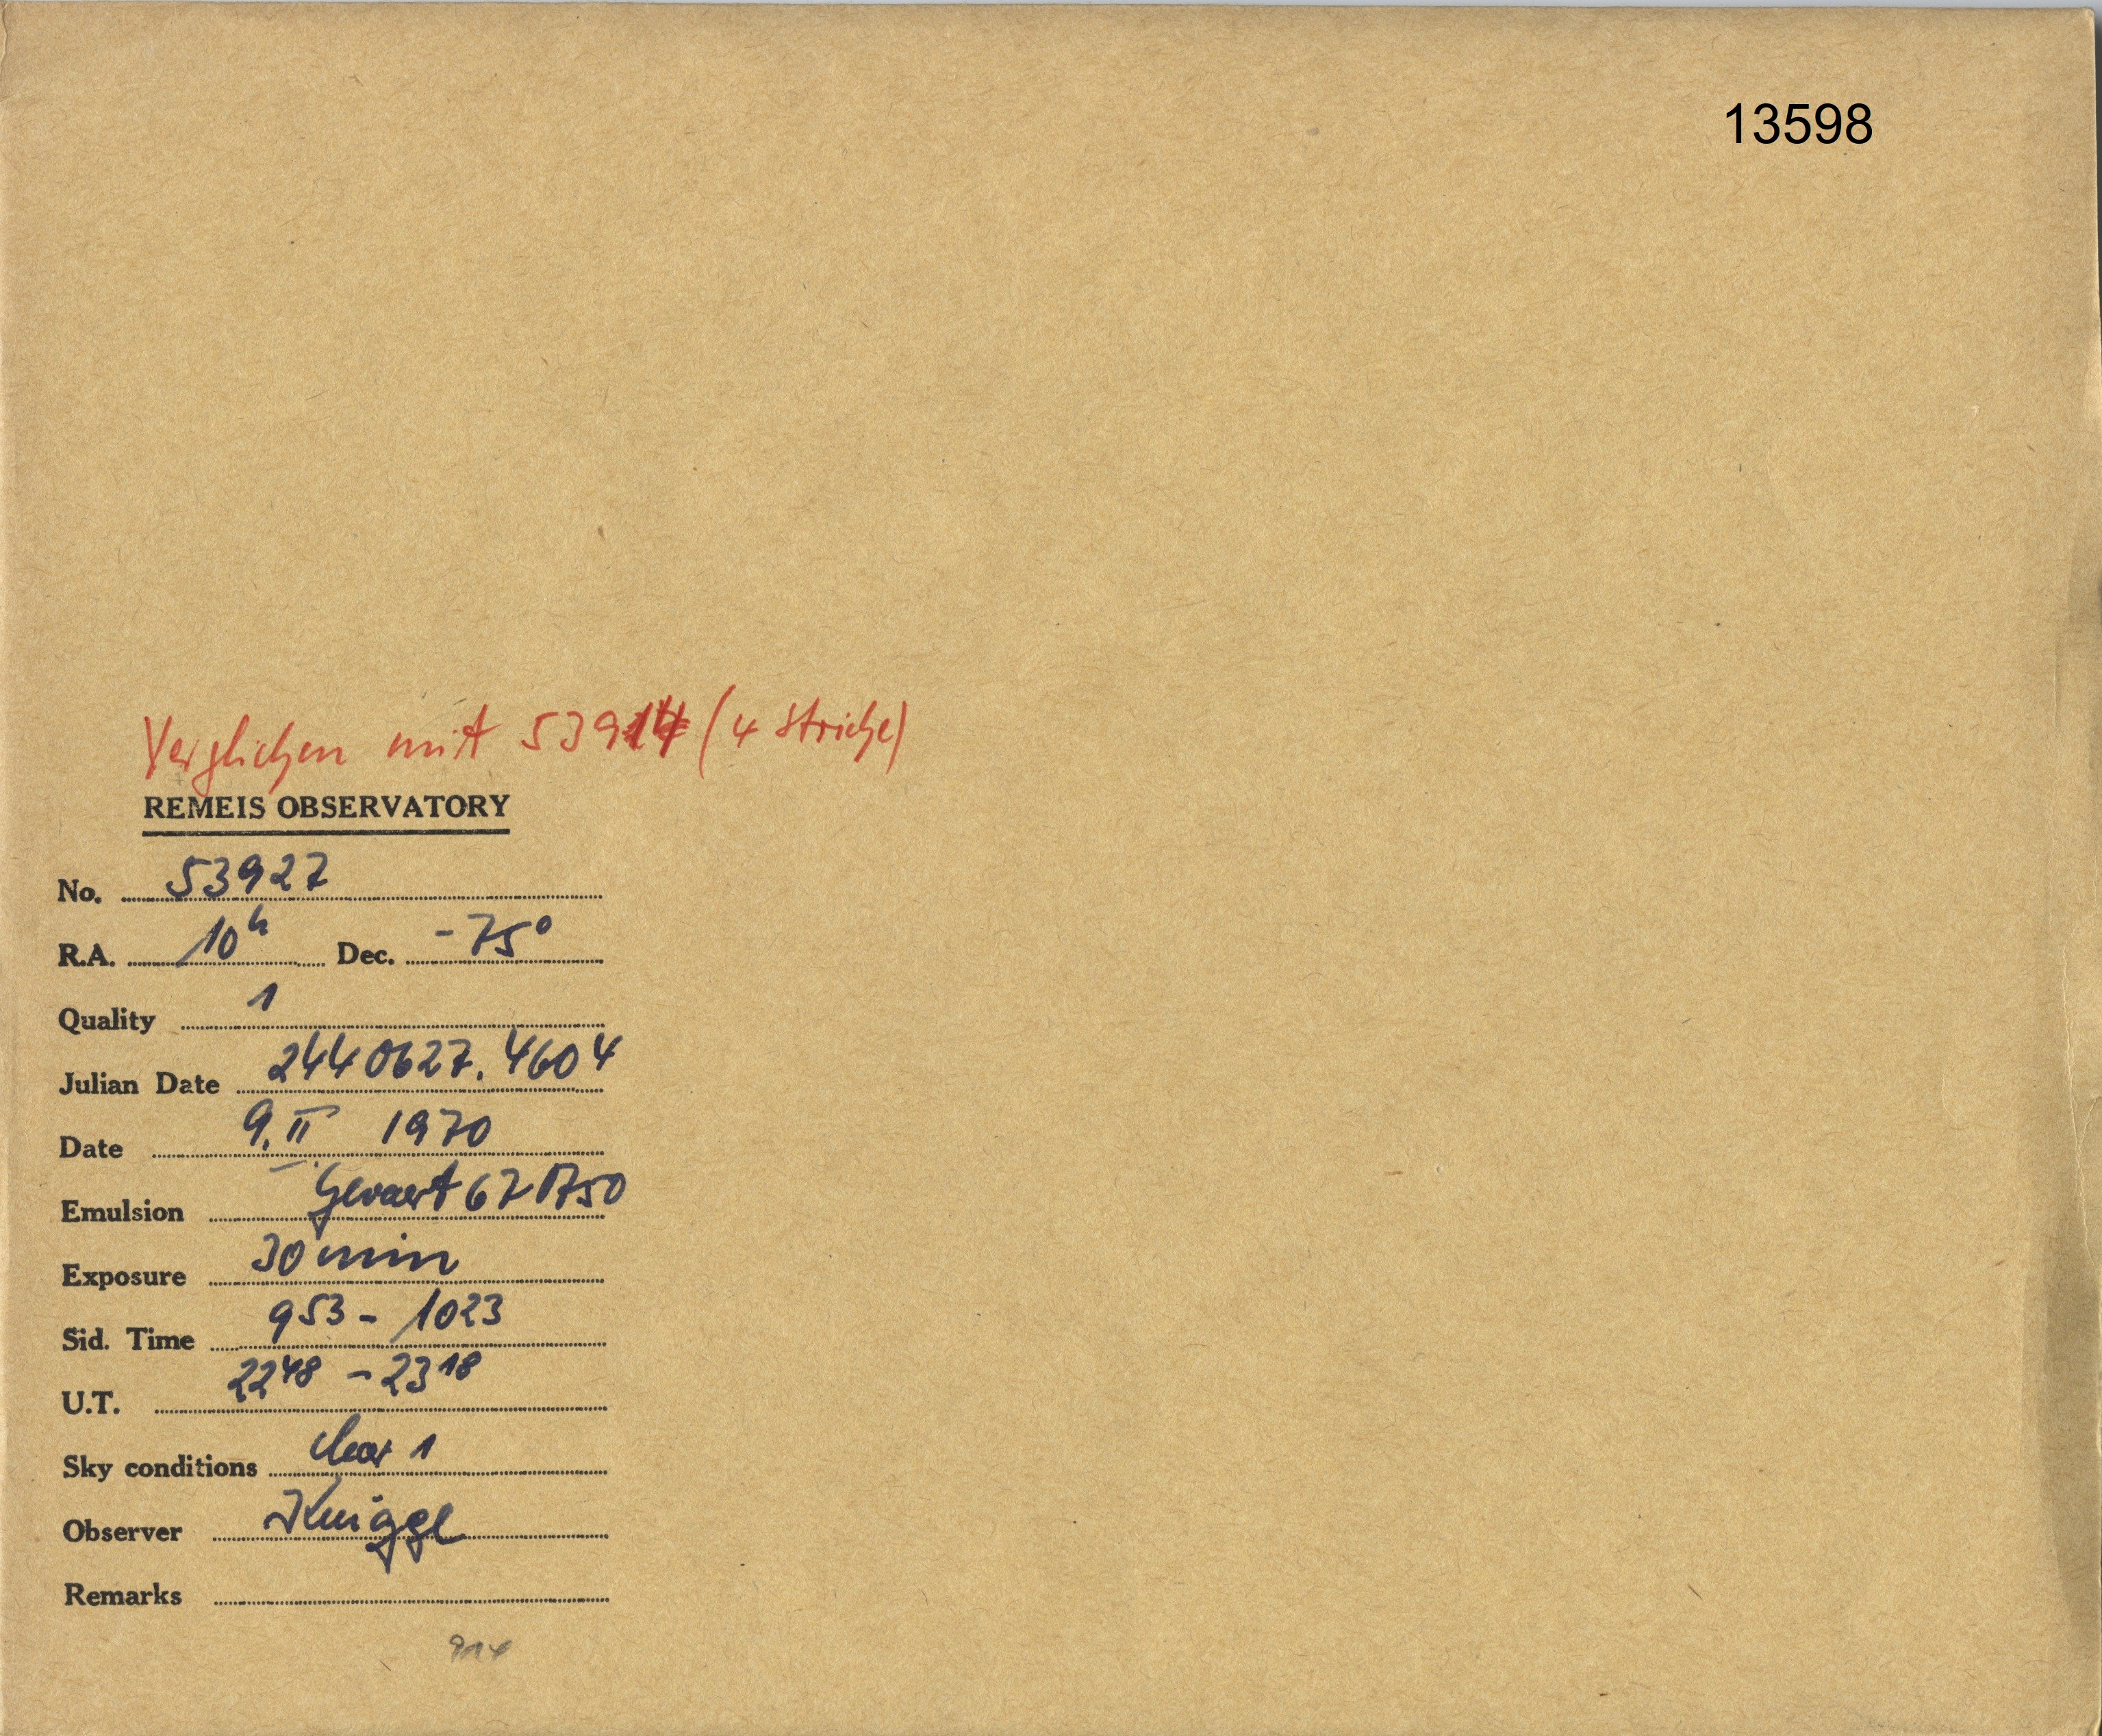 13598
Verglichen mit 53914 (4 Striche)
REMEIS OBSERVATORY
No. 53927
R.A. 10h Dec. -75°
Quality 1
Julian Date 2440627.4604
Date 9. II 1970
Emulsion Gevaert 67A50
Exposure 30 min
Sid. Time 953 - 1023
U.T. 2248 - 2318
Sky conditions clear 1
Observer Knigge
Remarks
914